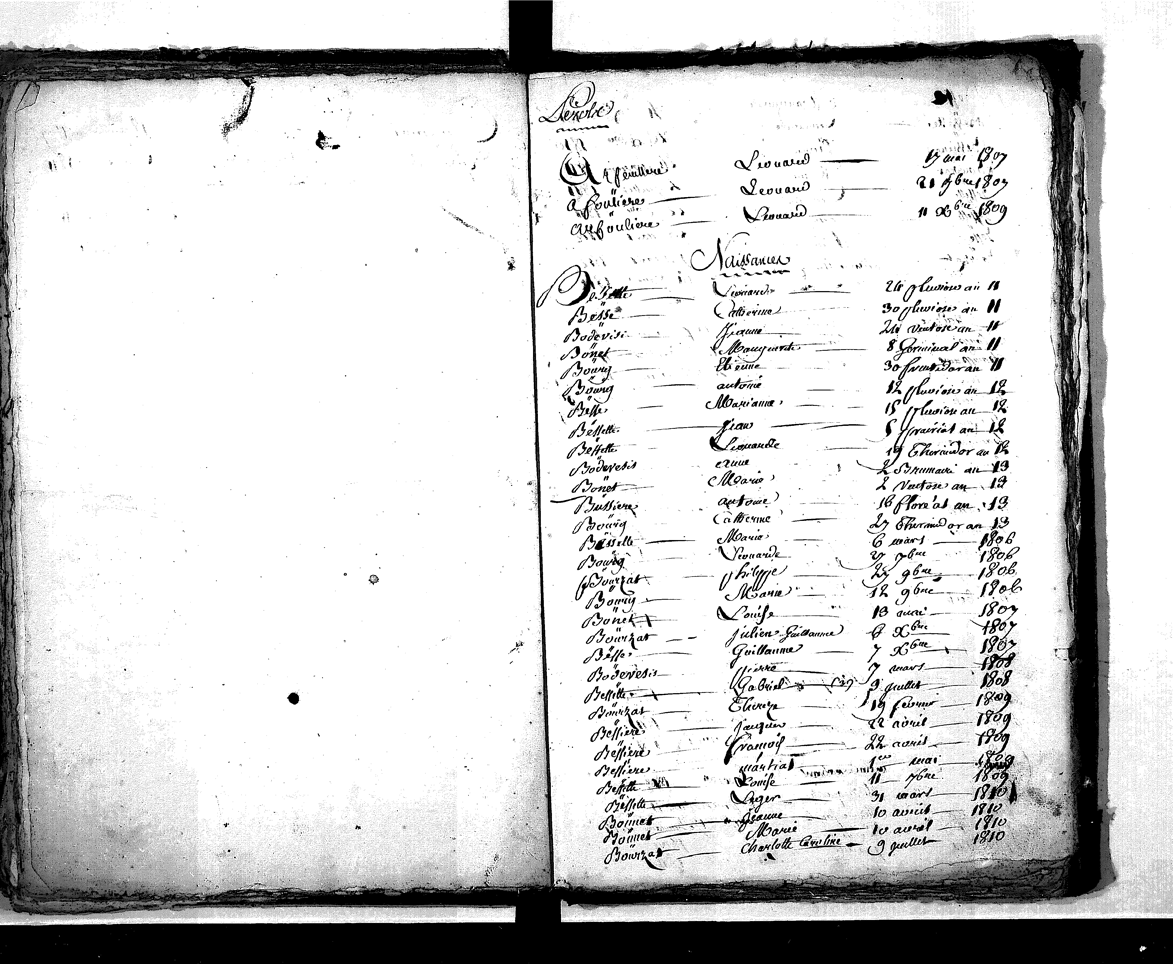 Arfeuillere Leonard 17 mai 1807
afoüliere Leonard 21 9bre 1807
arfoüliere Leonard 11 Xbre 1809
Naissances
Leonard 24 pluviose an 11
Besse Catherine 30 pluviose an 11
Bodevisi Jeanne 24 ventose an 11
Bönet Marguerite 8 Germinal an 11
Boürg Etienne 30 fructidor an 11
Boürg antoine 12 pluviose an 12
Bësse Marianne 15 pluviose an 12
Bëssette Jean 5 prairial an 12
Bëssette Leonarde 19 Thermidor an 12
Bödevesis anne 2 Brumaire an 13
Bönet Marie 2 Ventose an 13
Büssiere antoine 16 floréal an 13
Boürg Catherine 27 Thermidor an 13
Bëssette Marie 6 mars 1806
Boürg Leonarde 27 7bre 1806
Boürzat philippe 25 9bre 1806
Boürg Marie 12 9bre 1806
Bönet Louise 13 mai 1807
Boürzat Julien Guillaume 6 Xbre 1807
Bësse Guillaume 7 Xbre 1807
Bödevesis pierre 7 mars 1808
Bessette Gabriel 3 juillet 1808
Boürzat Thereze 19 fevrier 1809
Bessiere Jacques 22 avril 1809
Bëssiere francois 22 avril 1809
Bëssiere martial 1er mai 1809
Bëssette Louise 11 7bre 1809
Bëssette Leger 31 mars 1810
Bönnet Jeanne 10 avril 1810
Bönnet Marie 10 avril 1810
Boürzat Charlotte Caroline 9 juillet 1810